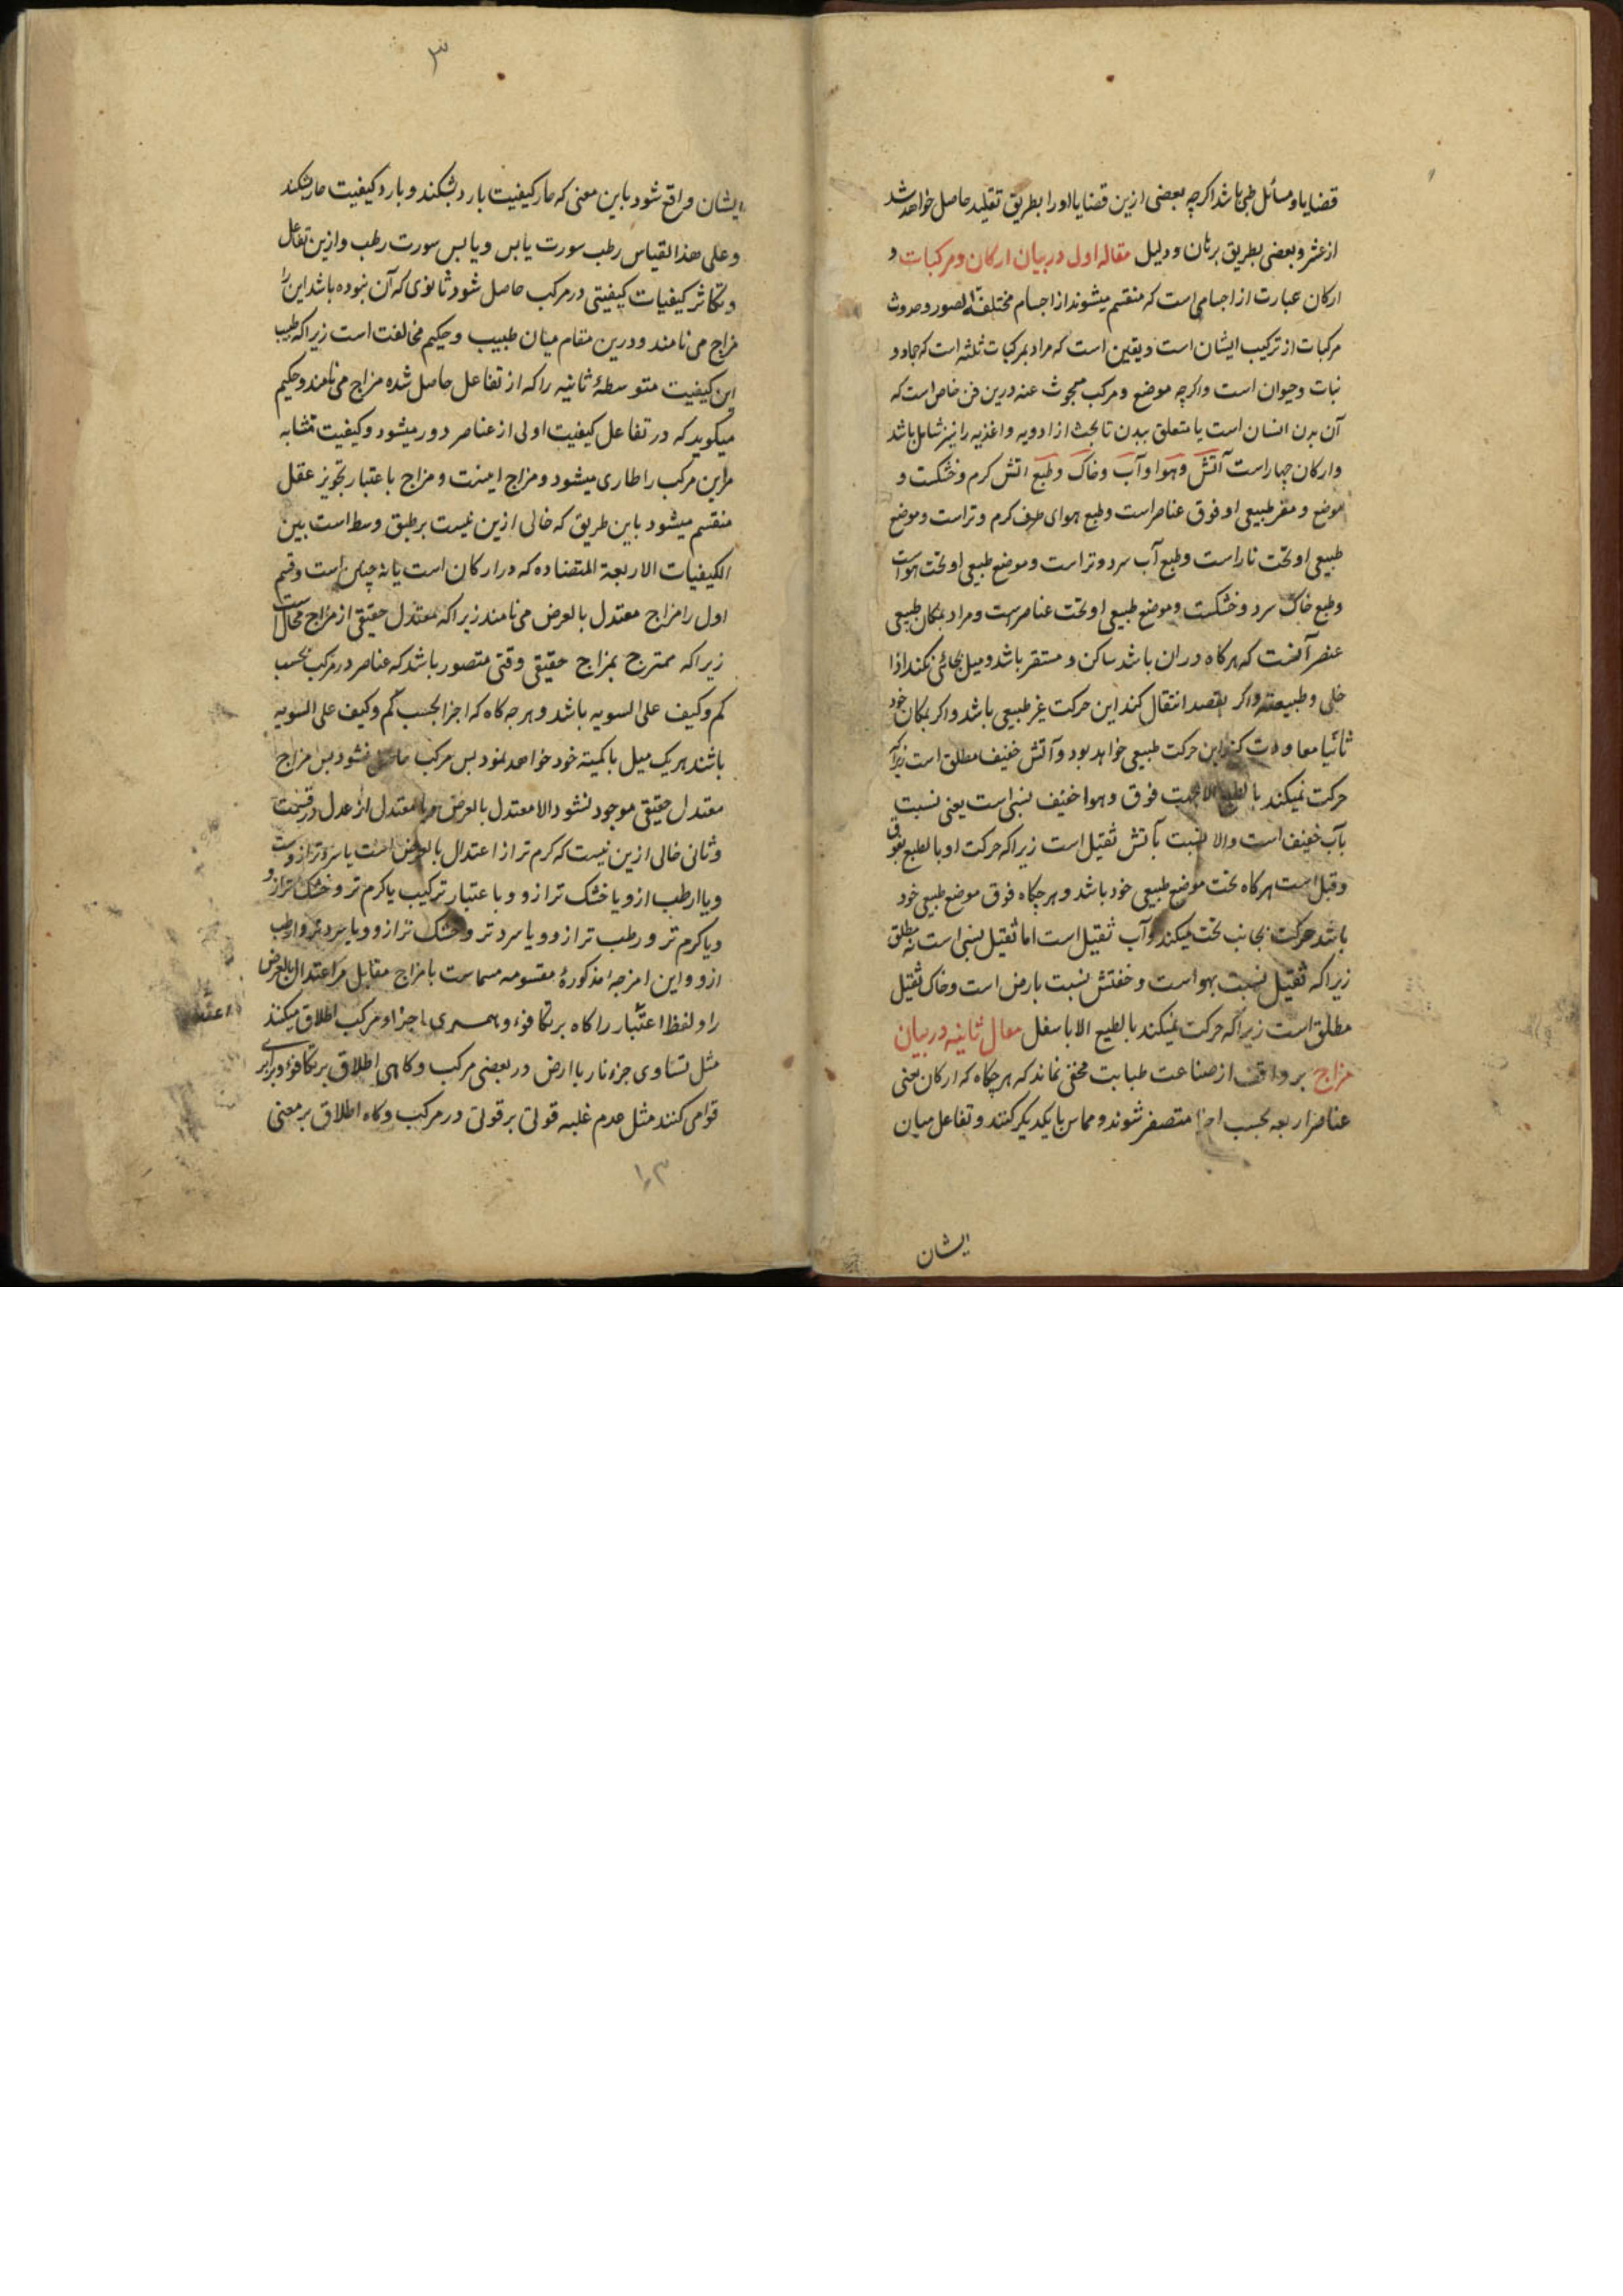 قضایا و مسائل طبی باشد اکرچه بعضی ازین قضایا او را بطریق تقلید حاصل خواهد شد
از عشر و بعضی بطریق برهان و دلیل مقاله اول در بیان ارکان و مرکبات و
ارکان عبارت از اجسامی است که منقسم میشوند از اجسام مختلفة الصور و حدوث
مرکبات از ترکیب ایشان است و یقین است که مراد بمرکبات ثلثه است که جماد و
نبات و حیوان است و اکرچه موضع و مرکب مبحوث عنه درین فن خاص است که
آن بدن انسان است یا متعلق ببدن تا بحث از ادویه و اغذیه را نیز شامل باشد
و ارکان چهار است آتش و هوا و آب و خاک و طبع اتش کرم و خشکست و
موضع و مقر طبیعی او فوق عناصر است و طبع هوای صرف کرم و تر است و موضع
طبیعی او تحت نار است و طبع آب سرد و تر است و موضع طبیعی او تحت هواست
و طبع خاک سرد و خشکست و موضع طبیعی او تحت عناصرست و مراد بمکان طبیعی
عنصر آنست که هرکاه دران باشد ساکن و مستقر باشد و میل بجائی نکند اذا
خلی و طبیعته و اکر بقصد انتقال کند این حرکت غیر طبیعی باشد و اکر بمکان خود
ثانیا معاودت کند این حرکت طبیعی خواهد بود و آتش خفیف مطلق است زیرا که
حرکت نمیکند بالطبع الا بجهت فوق و هوا خفیف نسبی است یعنی نسبت
بآب خفیف است والا نسبت بآتش ثقیل است زیرا که حرکت او بالطبع بفوق
وقتی است هرکاه تحت موضع طبیعی خود باشد و هرچکاه فوق موضع طبیعی خود
باشد حرکت بجانب تحت میکند و آب ثقیل است اما ثقیل نسبی است نه مطلق
زیرا که ثقیل نسبت بهواست و خفتش نسبت بارض است و خاک ثقیل
مطلق است زیرا که حرکت نمیکند بالطبع الا باسفل مقال ثانیه در بیان
مزاج بر واقف از صناعت طبابت مخفی نماند که هرچکاه که ارکان یعنی
عناصر اربعه بحسب اجزا متصغر شوند و مماس با یکدیکر کنند و تفاعل میان
ایشان
۳
ایشان واقع شود باین معنی که حار کیفیت بارد بشکند و بارد کیفیت حار بشکند
و علی هذا القیاس رطب سورت یابس و یابس سورت رطب و ازین تفاعل
و تکاثر کیفیات کیفیتی در مرکب حاصل شود ثانوی که آن نبوده باشد این را
مزاج می نامند و درین مقام میان طبیب و حکیم مخالفت است زیرا که طبیب
این کیفیت متوسطهٔ ثانیه را که از تفاعل حاصل شده مزاج می نامند و حکیم
میکوید که در تفاعل کیفیت اولی از عناصر دور میشود و کیفیت متشابه
مر این مرکب را طاری میشود و مزاج اینست و مزاج باعتبار تجویز عقل
منقسم میشود باین طریق که خالی ازین نیست بر طبق وسط است بین
الکیفیات الاربعة المتضاده که در ارکان است یا نه چنین است و قسم
اول را مزاج معتدل بالعرض می نامند زیرا که معتدل حقیقی از مزاج محال است
زیرا که ممتزج بمزاج حقیقی وقتی متصور باشد که عناصر در مرکب بحسب
کم و کیف علی السویه باشد و هر جه کاه که اجزا بحسب کم و کیف علی السویه
باشند هر یک میل بامکنه خود خواهد نمود بس مرکب حاصل نشود بس مزاج
معتدل حقیقی موجود نشود الا معتدل بالعرض معتدل از عدل در قسمت
و ثانی خالی ازین نیست که کرم تر از اعتدال بالعرض است یا سرد تر ازوست
و یا ارطب ازو یا خشک تر ازو و باعتبار ترکیب یا کرم تر و خشک تر ازو
و یا کرم تر و رطب تر ازو و یا سرد تر و خشک تر ازو و یا سرد تر و ارطب
ازو و این امزجه مذکورهٔ مقسومه مسماست بامزاج مقابل مر اعتدال بالعرض
را و لفظ اعتبار را کاه بر تکافوء و همسری اجزاء مرکب اطلاق میکنند
مثل تساوی جزء نار با ارض در بعضی مرکب و کاهی اطلاق بر تکافوء و برابری
قوا می کنند مثل عدم غلبه قوتی بر قوتی در مرکب و کاه اطلاق بر معنی